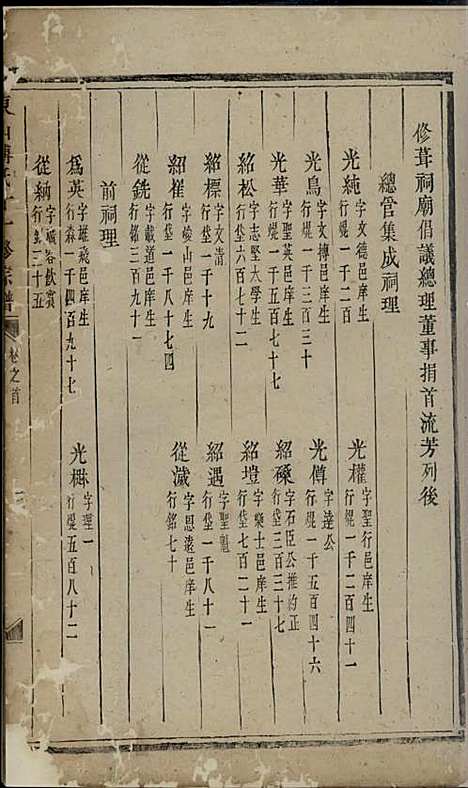 修葺祠廟倡議總理董事捐首流芳列後
總管集成祠理
光純 字文德邑庠生 行緄一千二百
光權 字聖行邑庠生 行緄一千二百四十一
光鳥 字文摶邑庠生 行緄一千三百三十
光傅 字達公 行焜一千五百四十六
光華 字聖英邑庠生 行焜一千五百七十七
紹磉 字石臣公推約正 行垡三百三十七
紹松 字志堅大學生 行垡六百七十二
紹塏 字樂士邑庠生 行垡七百二十一
紹標 字文清 行垡一千十九
紹遇 字聖魁 行垡一千八十一
紹嶊 字峻山邑庠生 行垡一千八十七四
從淢 字思遠邑庠生 行銘七十
從銑 字載道邑庠生 行銘三百九十一
前祠理
為英 字雄飛邑庠生 行森一千四百九十七
光楙 字理一 行焜五百八十二
從納 字咸若飲賓 行 三十五
東山傅氏十一修宗譜 卷之首